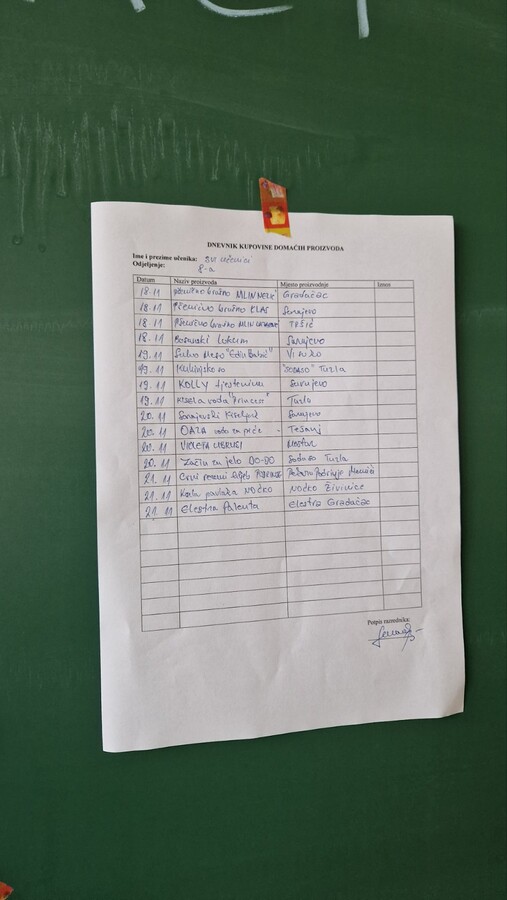 DNEVNIK KUPOVINE DOMAĆIH PROIZVODA
Ime i prezime učenika: svi učenici
Odjeljenje: 8-a
Datum Naziv proizvoda Mjesto proizvodnje Iznos
18.11 Pšenično brašno Gradačac
18.11 Pšenično brašno KLAS Sarajevo
18.11 Pšenično brašno MLIN
18.11 Bosanski Lokum Sarajevo
19.11 Suho meso Visoko
19.11 Kuhinjska so "SODASO" Tuzla
19.11 KOLLY tjestenina Sarajevo
19.11 Kisela voda "Princess" Tuzla
20.11 Sarajevski Kiseljak Sarajevo
20.11 OAZA voda za piće - Tešanj
20.11 VIOLETA UBRUSI Mostar
20.11 Začin za jelo DO-DO Sodaso Tuzla
21.11 Crni
21.11 Kisela pavlaka NOĆKO NOĆKO Živinice
21.11 Elestra Palenta Elestra Gradačac
Potpis razrednika: